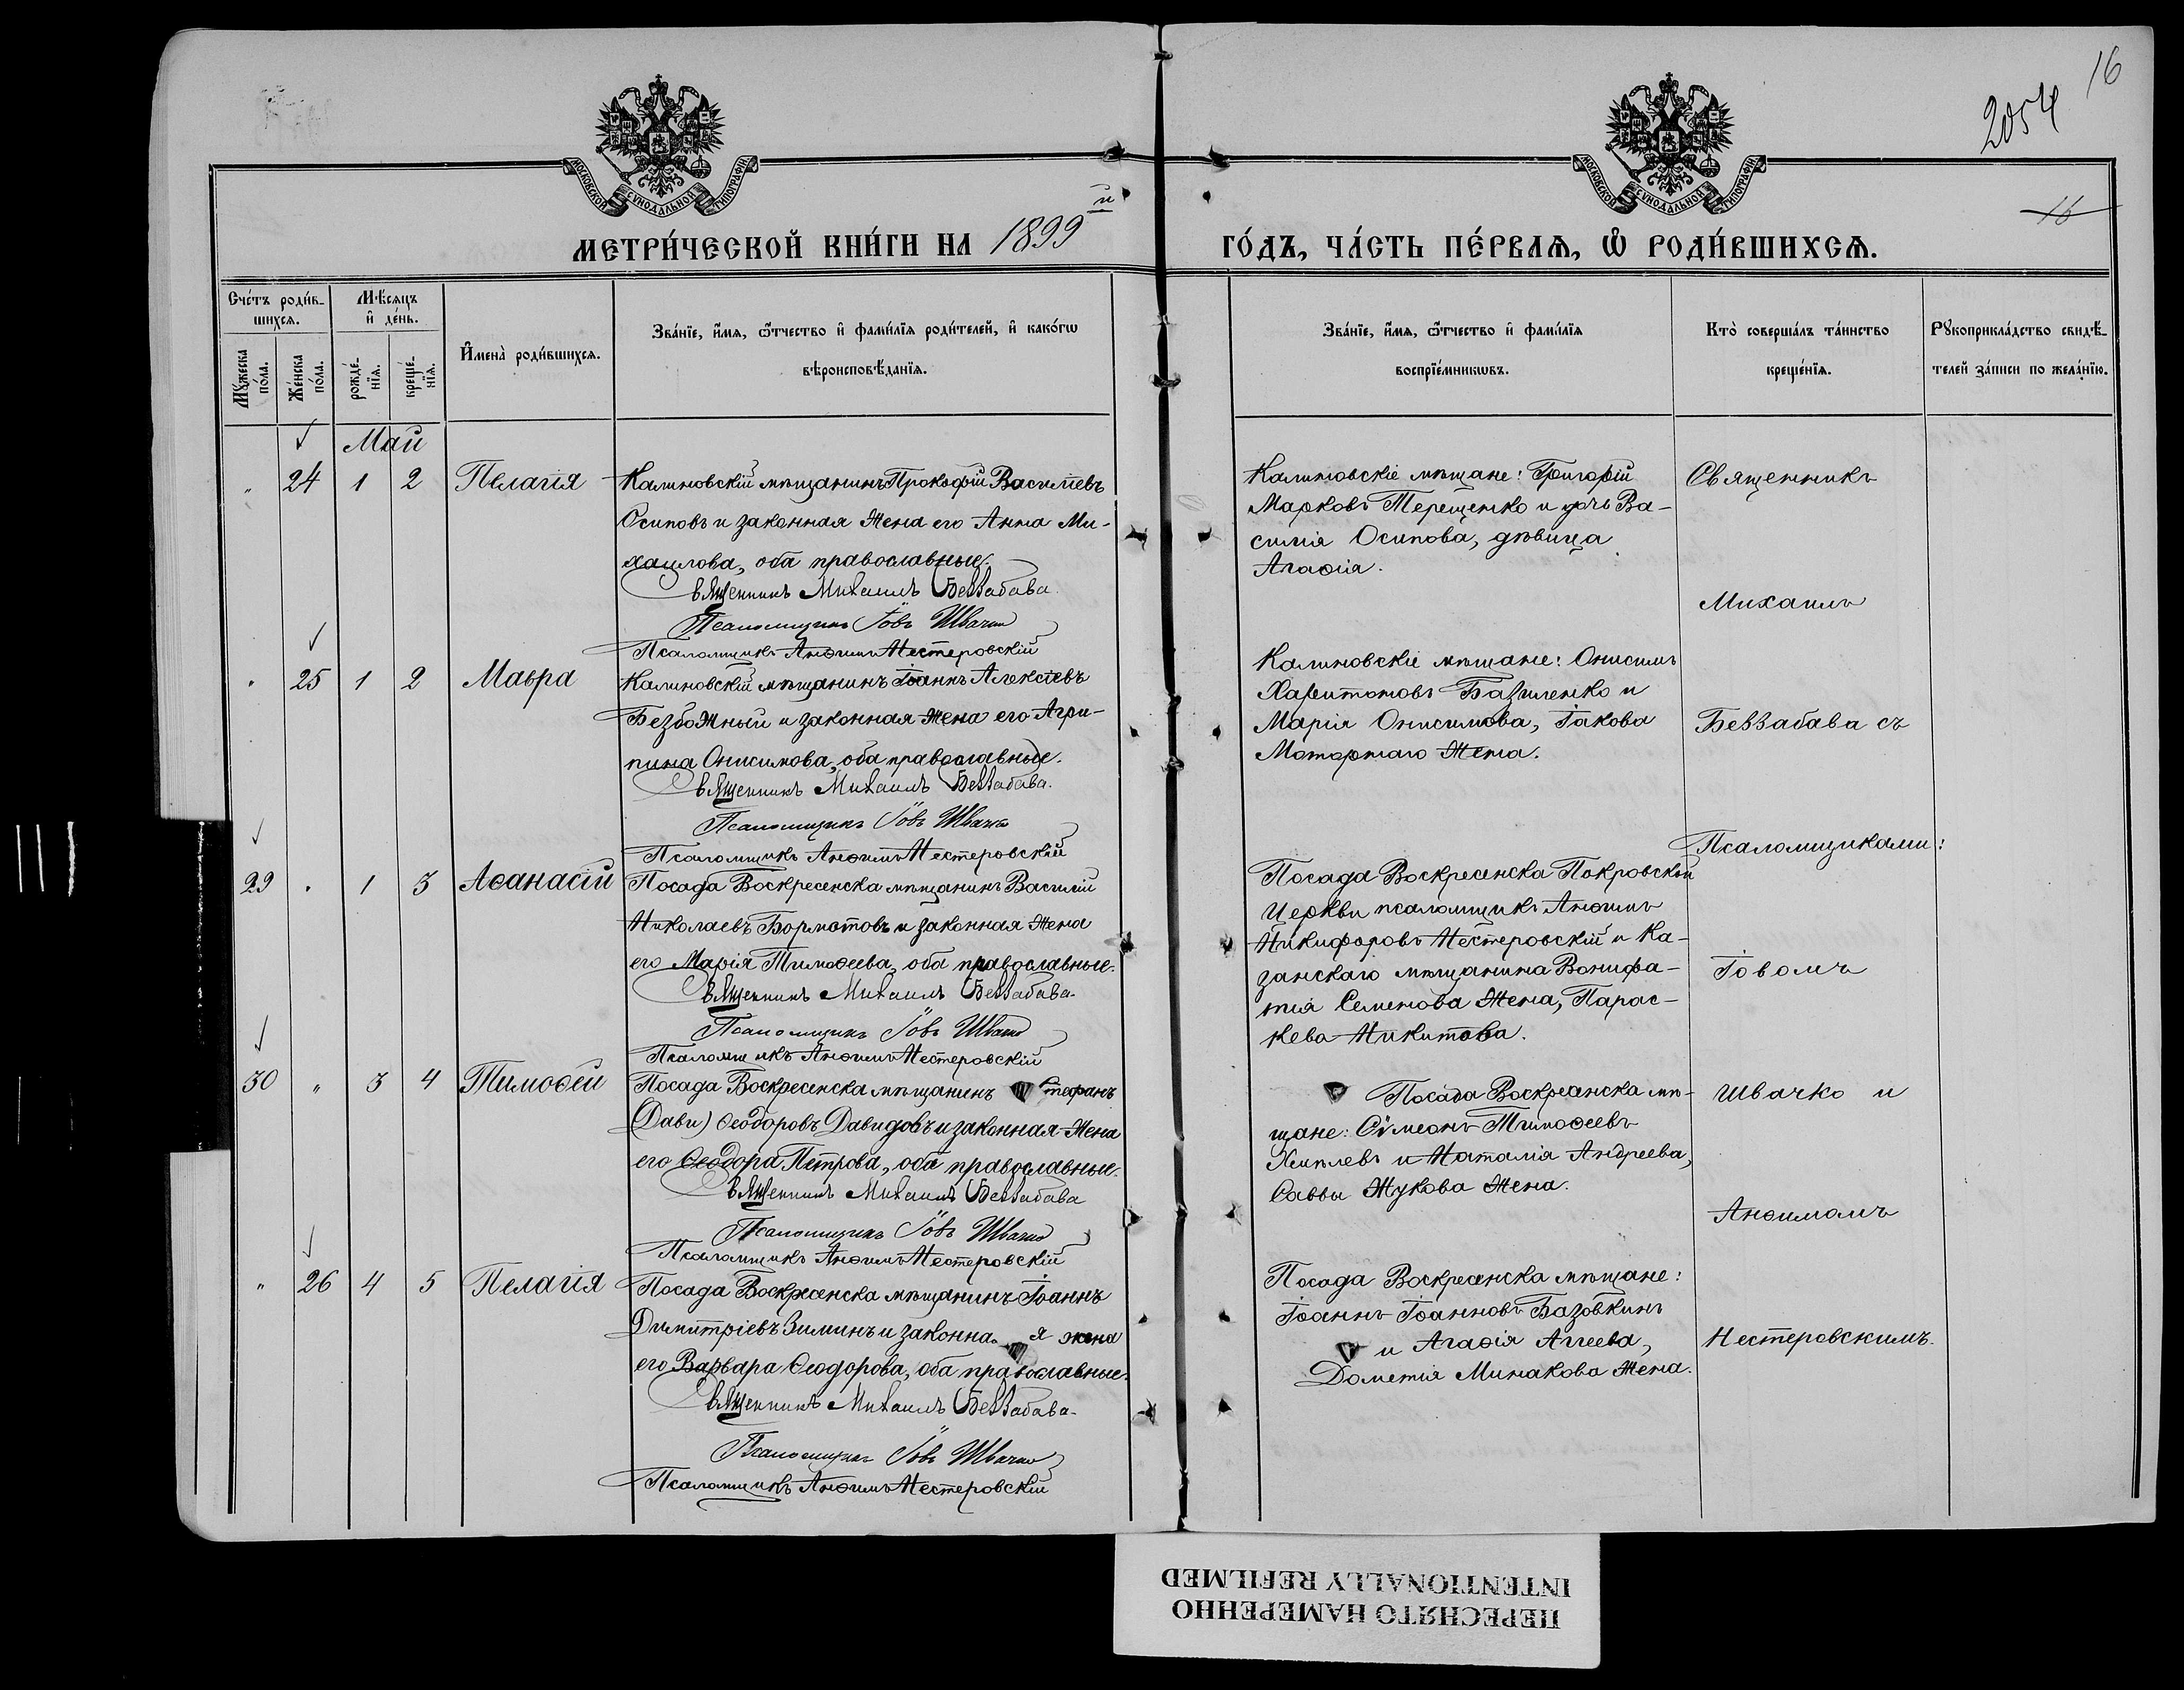 16
2054
16
МОСКОВСКОЙ СѴНОДАЛЬНОЙ ТИПОГРАФІИ
МОСКОВСКОЙ СѴНОДАЛЬНОЙ ТИПОГРАФІИ
МЕТРИ́ЧЕСКОЙ КНИ́ГИ НА 1899й ГО́ДЪ, ЧА́СТЬ ПЕ́РВАѦ, Ѡ҆ РОДИ́ВШИХСѦ.
Сче́тъ роди́в-
шихсѧ.
Мѣ́сѧцъ
и҆ де́нь.
Мꙋ́жеска
по́ла.
Же́нска
по́ла.
рожде́-
нїѧ.
креще́-
нїѧ.
И҆мена̀ роди́вшихсѧ.
Зва́нїе, и҆́мѧ, ѻ҆́тчество и҆ фами́лїѧ роди́телей, и҆ како́гѡ
вѣроисповѣ́данїѧ.
Зва́нїе, и҆́мѧ, ѻ҆́тчество и҆ фами́лїѧ
воспрїе́мникѡвъ.
Кто̀ соверша́лъ та́инство
креще́нїѧ.
Рꙋкоприкла́дство свидѣ́-
телей за́писи по жела́нїю.
Май
" 24 1 2 Пелагія
Калиновскій мѣщанинъ Прокофій Василіевъ
Осиповъ и законная жена его Анна Ми-
хаилова, оба православные.
Священникъ Михаилъ Беззабава.
Псаломщикъ Іовъ Швачко
Псаломщикъ Анѳимъ Нестеровскій
Калиновскіе мѣщане: Григорій
Марковъ Терещенко и дочь Ва-
силія Осипова, дѣвица
Агаѳія.
" 25 1 2 Мавра
Калиновскій мѣщанинъ Іоаннъ Алексѣевъ
Безбожный и законная жена его Агри-
пина Онисимова, оба православные.
Священникъ Михаилъ Беззабава.
Псаломщикъ Іовъ Швачко
Псаломщикъ Анѳимъ Нестеровскій
Калиновскіе мѣщане: Онисимъ
Харитоновъ Базиленко и
Марія Онисимова, Іакова
Моторнаго жена.
29 " 1 3 Аѳанасій
Посада Воскресенска мѣщанинъ Василій
Николаевъ Бормотовъ и законная жена
его Марія Тимоѳеева, оба православные.
Священникъ Михаилъ Беззабава.
Псаломщикъ Іовъ Швачко
Псаломщикъ Анѳимъ Нестеровскій
Посада Воскресенска Покровской
Церкви псаломщикъ Анѳимъ
Никифоровъ Нестеровскій и Ка-
занскаго мѣщанина Вонифа-
тія Семенова жена, Парас-
кева Никитова.
30 " 3 4 Тимоѳей
Посада Воскресенска мѣщанинъ Стефанъ
(Дави) Ѳеодоровъ Давидовъ и законная жена
его Ѳеодора Петрова, оба православные.
Священникъ Михаилъ Беззабава
Псаломщикъ Іовъ Швачко
Псаломщикъ Анѳимъ Нестеровскій
Посада Воскресенска мѣ-
щане: Сѵмеонъ Тимоѳеевъ
и Наталія Андреева,
Саввы Жукова жена.
" 26 4 5 Пелагія
Посада Воскресенска мѣщанинъ Іоаннъ
Димитріевъ Зиминъ и законная жена
его Варвара Ѳеодорова, оба православные.
Священникъ Михаилъ Беззабава.
Псаломщикъ Іовъ Швачко
Псаломщикъ Анѳимъ Нестеровскій
Посада Воскресенска мѣщане:
Іоаннъ Іоанновъ Базовкинъ
и Агаѳія Аггеева,
Дометія Минакова жена.
Священникъ
Михаилъ
Беззабава съ
Псаломщиками:
Іовомъ
Швачко и
Анѳимомъ
Нестеровскимъ.
ПЕРЕСНЯТО НАМЕРЕННО
INTENTIONALLY REFILMED